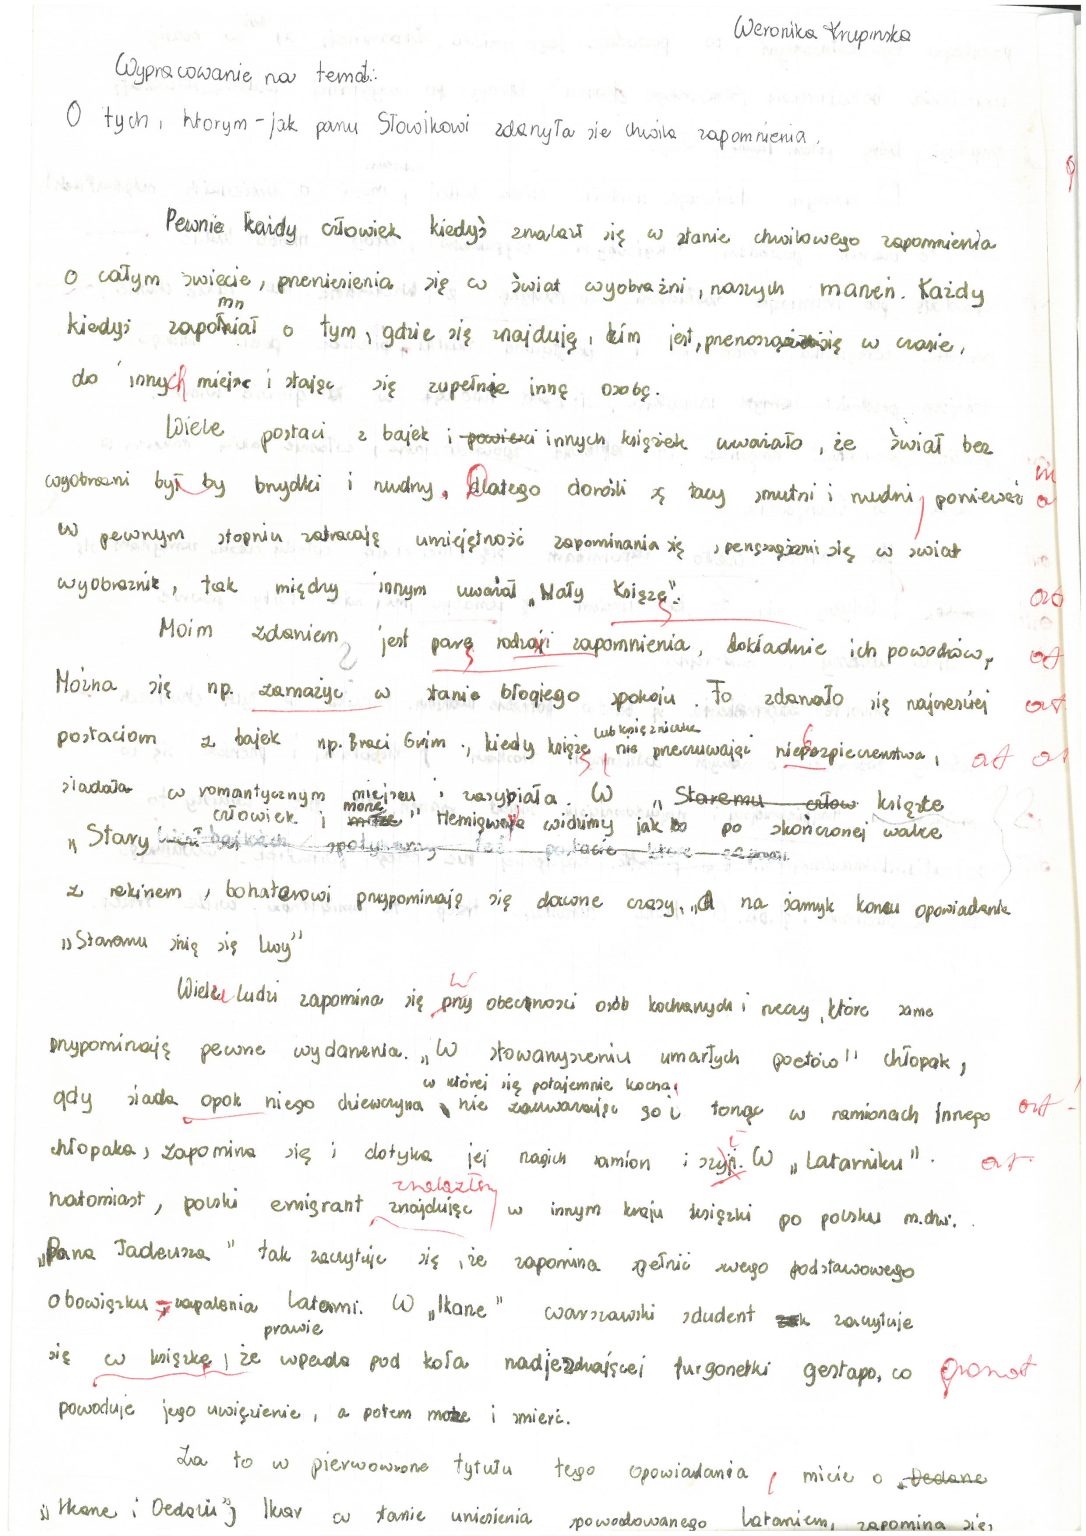 Weronika Krupinska
Wypracowanie na temat:
O tych, ktorym - jak panu Słowikowi zdarzyła sie chwila zapomnienia.
Pewnie każdy człowiek kiedyś znalazł się w stanie chwilowego zapomnienia
o całym świecie, przeniesienia się w świat wyobraźni, naszych marzeń. Każdy
mn
kiedyś zapomniał o tym, gdzie się znajduję, kim jest, przenosząc się w czasie,
do innych miejsc i stając się zupełnie inną osobą.
Wiele postaci z bajek i powieści innych książek uważało, że świat bez
wyobrazni był by brzydki i nudny. Dlatego dorośli są tacy smutni i nudni, ponieważ
w pewnym stopniu zatracają umiejętność zapominania się, się w swiat
wyobraznie, tak między innym uważał „Mały Książę".
ort
Moim zdaniem jest parę rodzaji zapomnienia, dokładnie ich powodów,
ort
Można się np. zamażyć w stanie błogiego spokoju. To zdarzało się najcześciej
ort
lub księżniczka
postaciom z bajek np. Braci Grim., kiedy książe nie przeczuwając niepezpieczenstwa,
ort
siadała w romantycznym miejscu i zasypiała. W „Staremu człow książce
człowiek i morze
„Stary " Hemigwaya widzimy jak to po skończonej walce
z rekinem, bohaterowi przypominają się dawne czasy, „A na samyk koncu opowiadania
„Staremu śnią się lwy"
Wielu ludzi zapomina się przy obecnosci osób kochanych i rzeczy, które same
w
przypominają pewne wydarzenia. „W stowarzyszeniu umarłych poetów" chłopak,
w której się potajemnie kocha,
gdy siada opok niego dziewczyna nie zauważając go i tonąc w ramionach innego
ort
chłopaka, zapomina się i dotyka jej nagich ramion i szyji. W „Latarniku".
ort
znalazłszy
natomiast, polski emigrant znajdując w innym kraju książki po polsku m.dni.
„Pana Tadeusza" tak zaczytuje się, że zapomina spełnić swego podstawowego
obowiązku - zapalenia latarni. W „Ikarze" warszawski student zaczytuje
prawie
się w książkę, że wpada pod koła nadjezdnającej furgonetki gestapo, co
powoduje jego uwięzienie, a potem może i smierć.
Za to w pierwowzorze tytułu tego opowiadania, micie o „Dedane
„Ikarze i Dedalu", Ikar w stanie uniesienia spowodowanego lataniem, zapomina się,